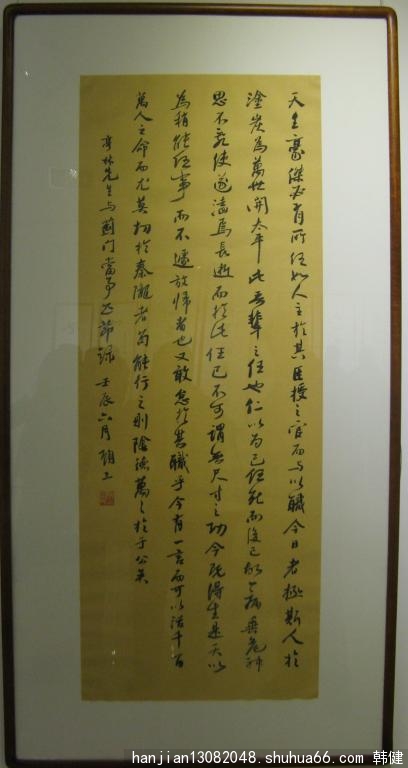 天生豪傑必有所任如人主於其臣授之官而与以職今日者拯斯人於
塗炭為萬世開太平此吾輩之任也仁以為己任死而後已故一病垂危神
思不亂使遂溘焉長逝而於此任已不可謂無尺寸之功今既得生是天以
為稍能任事而不遽放歸者也又敢怠於其職乎今有一言而可以活千百
萬人之命而尤莫切於秦隴者苟能行之則陰德萬々於于公矣
亭林先生与薊門當事書節錄 壬辰六月
hanjian13082048.shuhua66.com 韩健